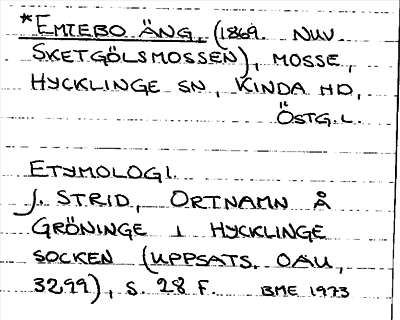 *EMTEBO ÄNG, (1869. NUV.
SKETGÖLSMOSSEN), MOSSE,
HYCKLINGE SN, KINDA HD,
ÖSTG. L.
ETYMOLOGI.
J. STRID, ORTNAMN Å
GRÖNINGE I HYCKLINGE
SOCKEN (UPPSATS. OAU,
3299), S. 28 F. BME 1973